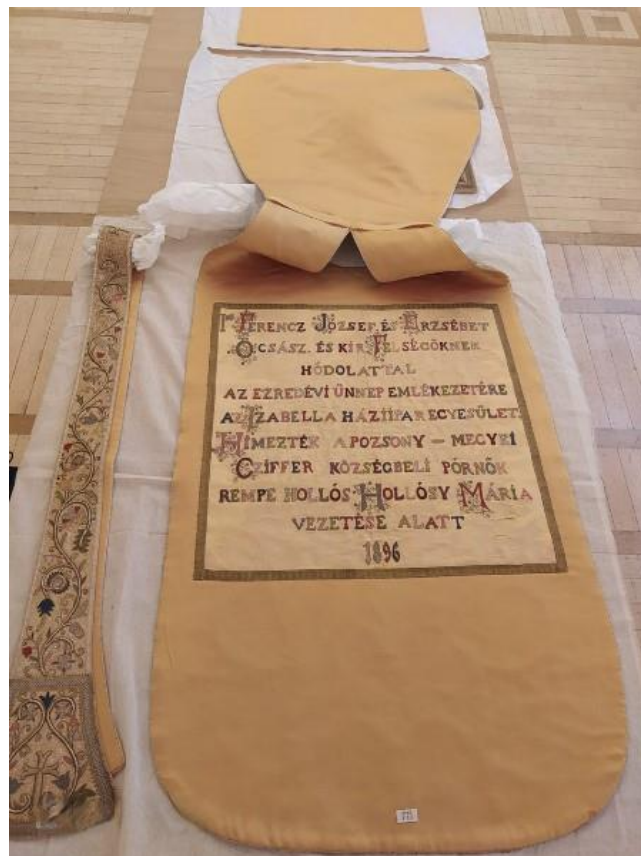 I. FERENCZ JÓZSEF, ÉS ERZSÉBET
Ő CSÁSZ. ÉS KIR. FELSÉGÖKNEK
HÓDOLATTAL
AZ EZREDÉVI ÜNNEP EMLÉKEZETÉRE
AZ IZABELLA HÁZIIPAR EGYESÜLET.
HIMEZTÉK A POZSONY – MEGYEI
CZIFFER KÖZSÉGBELI PÓRNŐK
REMPE HOLLÓS HOLLÓSY MÁRIA
VEZETÉSE ALATT
1896